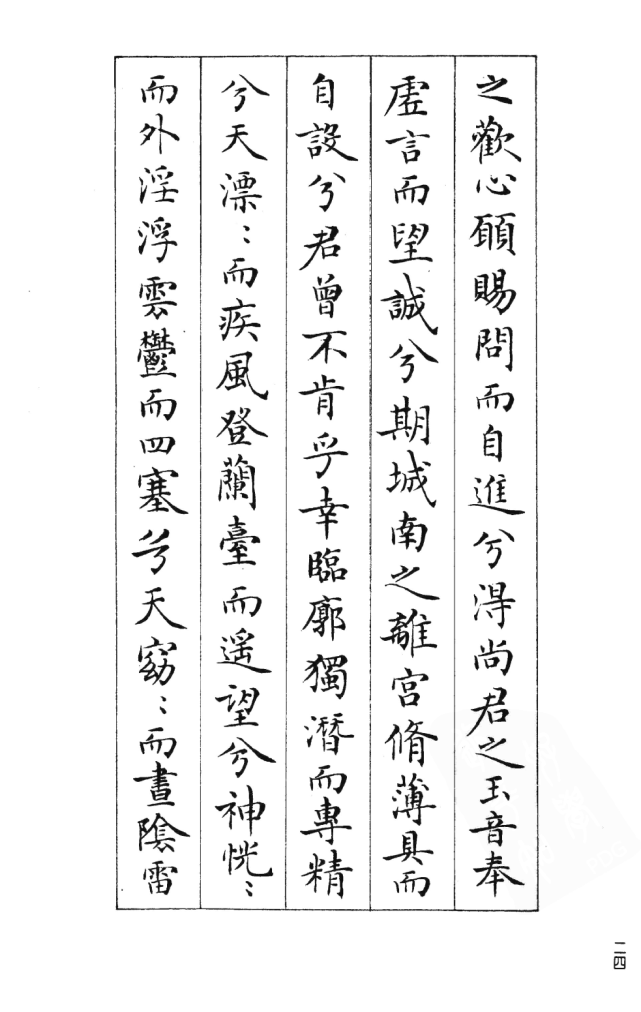 之歡心願賜問而自進兮得尚君之玉音奉
虛言而望誠兮期城南之離宮脩薄具而
自設兮君曾不肯乎幸臨廓獨潛而專精
兮天漂:而疾風登蘭臺而遥望兮神恍:
而外淫浮雲鬱而四塞兮天窈:而晝陰雷
二四